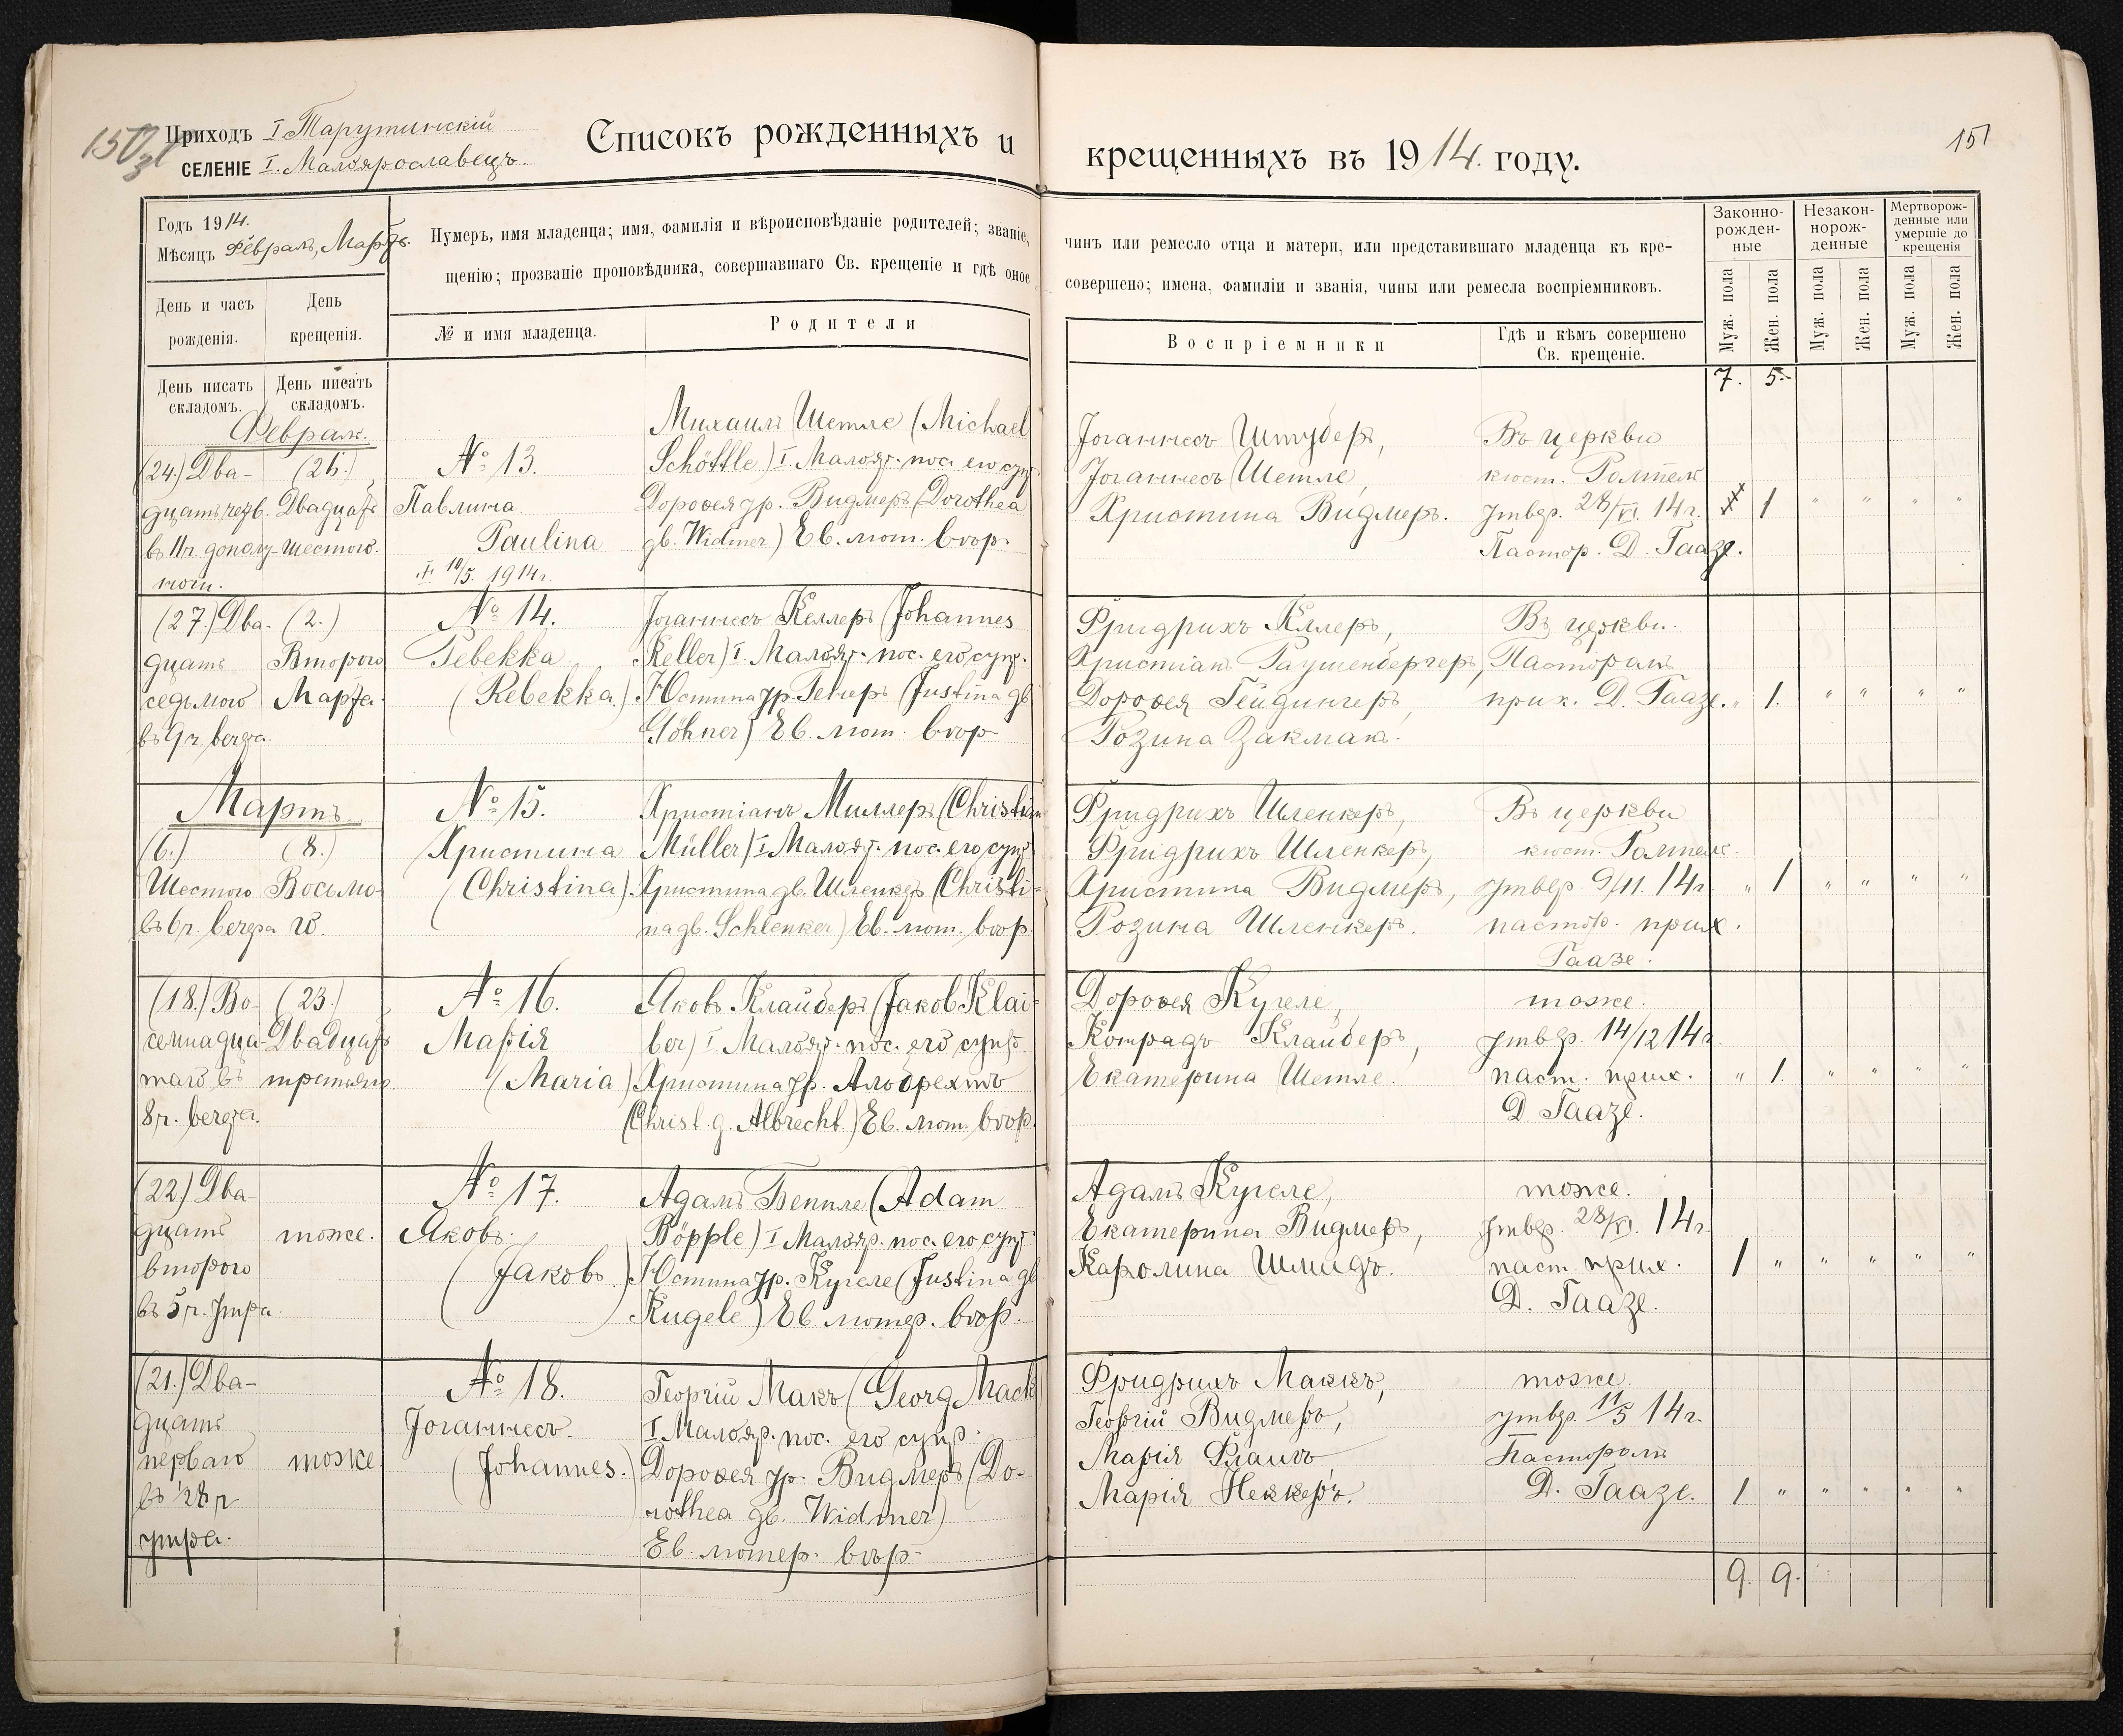 150
Приходъ I Тарутинскій
СЕЛЕНІЕ I. Малоярославецъ.
Списокъ рожденныхъ и
крещенныхъ въ 1914. году.
151
Годъ 1914.
Мѣсяцъ Февраль, Мартъ.
Нумеръ, имя младенца; имя, фамилія и вѣроисповѣданіе родителей; званіе,
щенію; прозваніе проповѣдника, совершавшаго Св. крещеніе и гдѣ оное
чинъ или ремесло отца и матери, или представившаго младенца къ кре-
совершено; имена, фамиліи и званія, чины или ремесла воспріемниковъ.
День и часъ
рожденія.
День
крещенія.
№ и имя младенца.
Родители
Воспріемники
Гдѣ и кѣмъ совершено
Св. крещеніе.
Законно-
рожден-
ные
Незакон-
норож-
денные
Мертворож-
денные или
умершіе до
крещенія
Муж. пола
Жен. пола
Муж. пола
Жен. пола
Муж. пола
Жен. пола
День писать
складомъ.
День писать
складомъ.
7. 5.
Февраль.
(24.) Два-
дцать четв.
въ 11 ч. дополу-
ночи.
(26.)
Двадцать
шестого.
№ 13.
Павлина
Paulina
10/5. 1914 г.
Михаилъ Шетле (Michael
Schöttle) I. Малояр. пос. его супр.
Доротея ур. Видмеръ (Dorothea
gb. Widmer) Ев. лют. вѣр.
Іоганнесъ Штуберъ,
Іоганнесъ Шетле,
Христина Видмеръ.
Въ церкви
кюст.
утвер. 28/VI. 14 г.
Пастор. Д. Гаазе.
1 " " " "
(27.) Два-
дцать
седьмого
въ 9 ч. вечера.
(2.)
Второго
Марта.
№ 14.
Ребекка
(Rebekka.)
Іоганнесъ Келлеръ (Johannes
Keller) I. Малояр. пос. его супр.
Юстина ур. Генеръ (Justina gb
Göhner) Ев. лют. вѣр
Фридрихъ Кллеръ,
Христіанъ Раушенбергеръ,
Доротея Гейдингеръ,
Розина Закманъ.
Въ церкви.
Пасторомъ
прих. Д. Гаазе.
" 1. " " " "
Мартъ.
(6.)
Шестого
въ 6 ч. вечера
(8.)
Восьмо-
го.
№ 15.
Христина
(Christina)
Христіанъ Миллеръ (Christian
Müller) I Малояр. пос. его супр
Христина gb. Шленкеръ (Christi-
na gb. Schlenker) Ев. лют. вѣр.
Фридрихъ Шленкеръ,
Фридрихъ Шленкеръ,
Христина Видмеръ,
Розина Шленкеръ.
Въ церкви
кюст.
утвер. 9/11. 14 г.
пастор. прих.
Гаазе.
" 1 " " " "
(18.) Во-
семнадца-
таго въ
8 ч. вечера.
(23.)
Двадцать
третьяго.
№ 16.
Марія
(Maria)
Яковъ Клайберъ (Jakob Klai-
ber) I. Малояр. пос. его супр.
Христина ур. Альбрехтъ
(Christ. g. Albrecht.) Ев. лют. вѣр.
Доротея Кугеле,
Конрадъ Клайберъ,
Екатерина Шетле.
тоже.
утвер. 14/12 14 г.
паст. прих.
Д. Гаазе.
" 1. " " " "
(22.) Два-
дцать
второго
въ 5 ч. утра.
тоже.
№ 17.
Яковъ.
(Jakob.)
Адамъ Беппле (Adam
Böpple) I Малояр. пос. его супр
Юстина ур. Кугеле (Justina gb
Kugele) Ев. лютер. вѣр.
Адамъ Кугеле,
Екатерина Видмеръ,
Каролина Шмидъ.
тоже.
утвер. 28/VI. 14 г.
паст. прих.
Д. Гаазе.
1 " " " " "
(21.) Два-
дцать
перваго
въ ½8 ч
утра.
тоже
№ 18.
Іоганнесъ.
(Johannes.)
Георгій Макъ (Georg Mack
I Малояр. пос. его супр.
Доротея ур. Видмеръ (Do-
rothea gb. Widmer)
Ев. лютер. вѣр.
Фридрихъ Маккъ,
Георгій Видмеръ,
Марія Флаигъ,
Марія Неккеръ.
тоже.
утвер. 11/5 14 г.
Пасторомъ
Д. Гаазе.
1 " " " " "
9. 9.